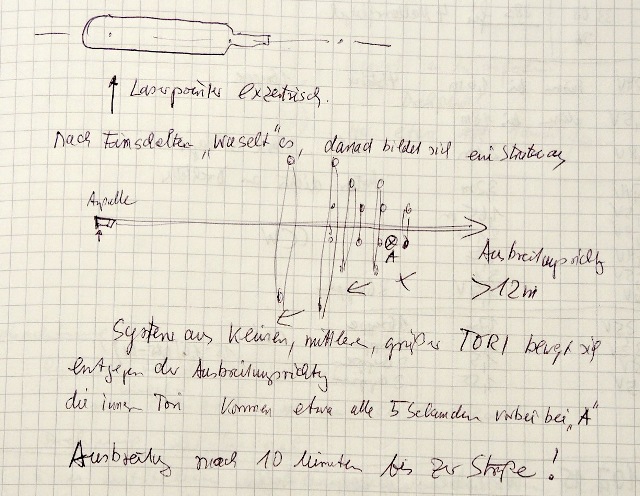 Laserpointer exzentrisch.
Nach Einschalten „wuselt" es, danach bildet sich eine Struktur aus
Ampulle
A
Ausbreitungsrichtg
>12m
System aus kleinen, mittleren, großen TORI bewegt sich
entgegen der Ausbreitungsrichtg
die inneren Tori kommen etwa alle 5 Sekunden vorbei bei „A"
Ausbreitg nach 10 Minuten bis zur Straße!